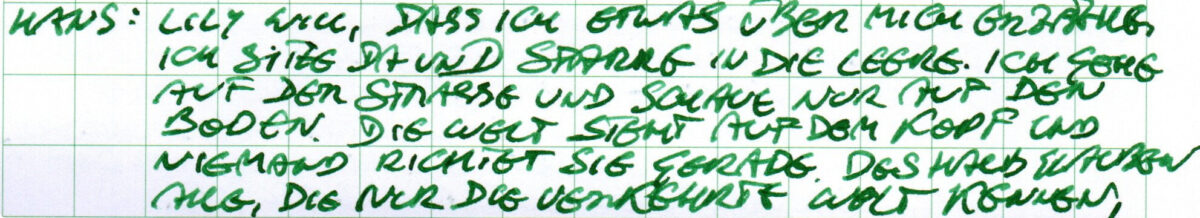 HANS: LILY WILL, DASS ICH ETWAS ÜBER MICH ERZÄHLE.
ICH SITZE DA UND STARRE IN DIE LEERE. ICH GEHE
AUF DER STRASSE UND SCHAUE NUR AUF DEN
BODEN. DIE WELT STEHT AUF DEM KOPF UND
NIEMAND RICHTET SIE GERADE. DESHALB GLAUBEN
ALLE, DIE NUR DIE VERKEHRTE WELT KENNEN,